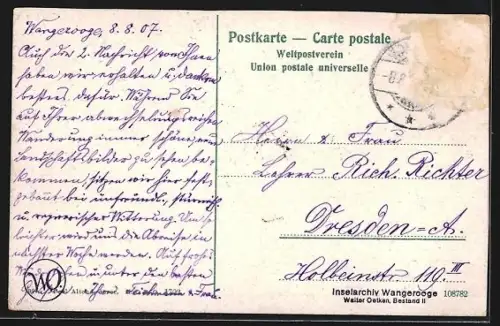 Wangerooge, 8.8.07.
Auch die 2. Nachricht von Ihnen
haben wir erhalten u. danken
bestens dafür. Während Sie
auf Ihrer abwechselungsreichen
Wanderung immer schöne, neue
Landschaftsbilder zu sehen be-
kommen, sitzen wir hier fest-
gebaut bei unfreundl., stürmisch
u. regnerischer Witterung. Um so
leichter wird uns die Abreise in
nächster Woche werden. Auf frohes
u. unter den besten
Ihre u. Frau.
Postkarte — Carte postale
Weltpostverein
Union postale universelle
Herrn & Frau
Lehrer Rich. Richter
Dresden-A.
Holbeinstr. 119. III
Inselarchiv Wangerooge 108782
Walter Oetken, Bestand II